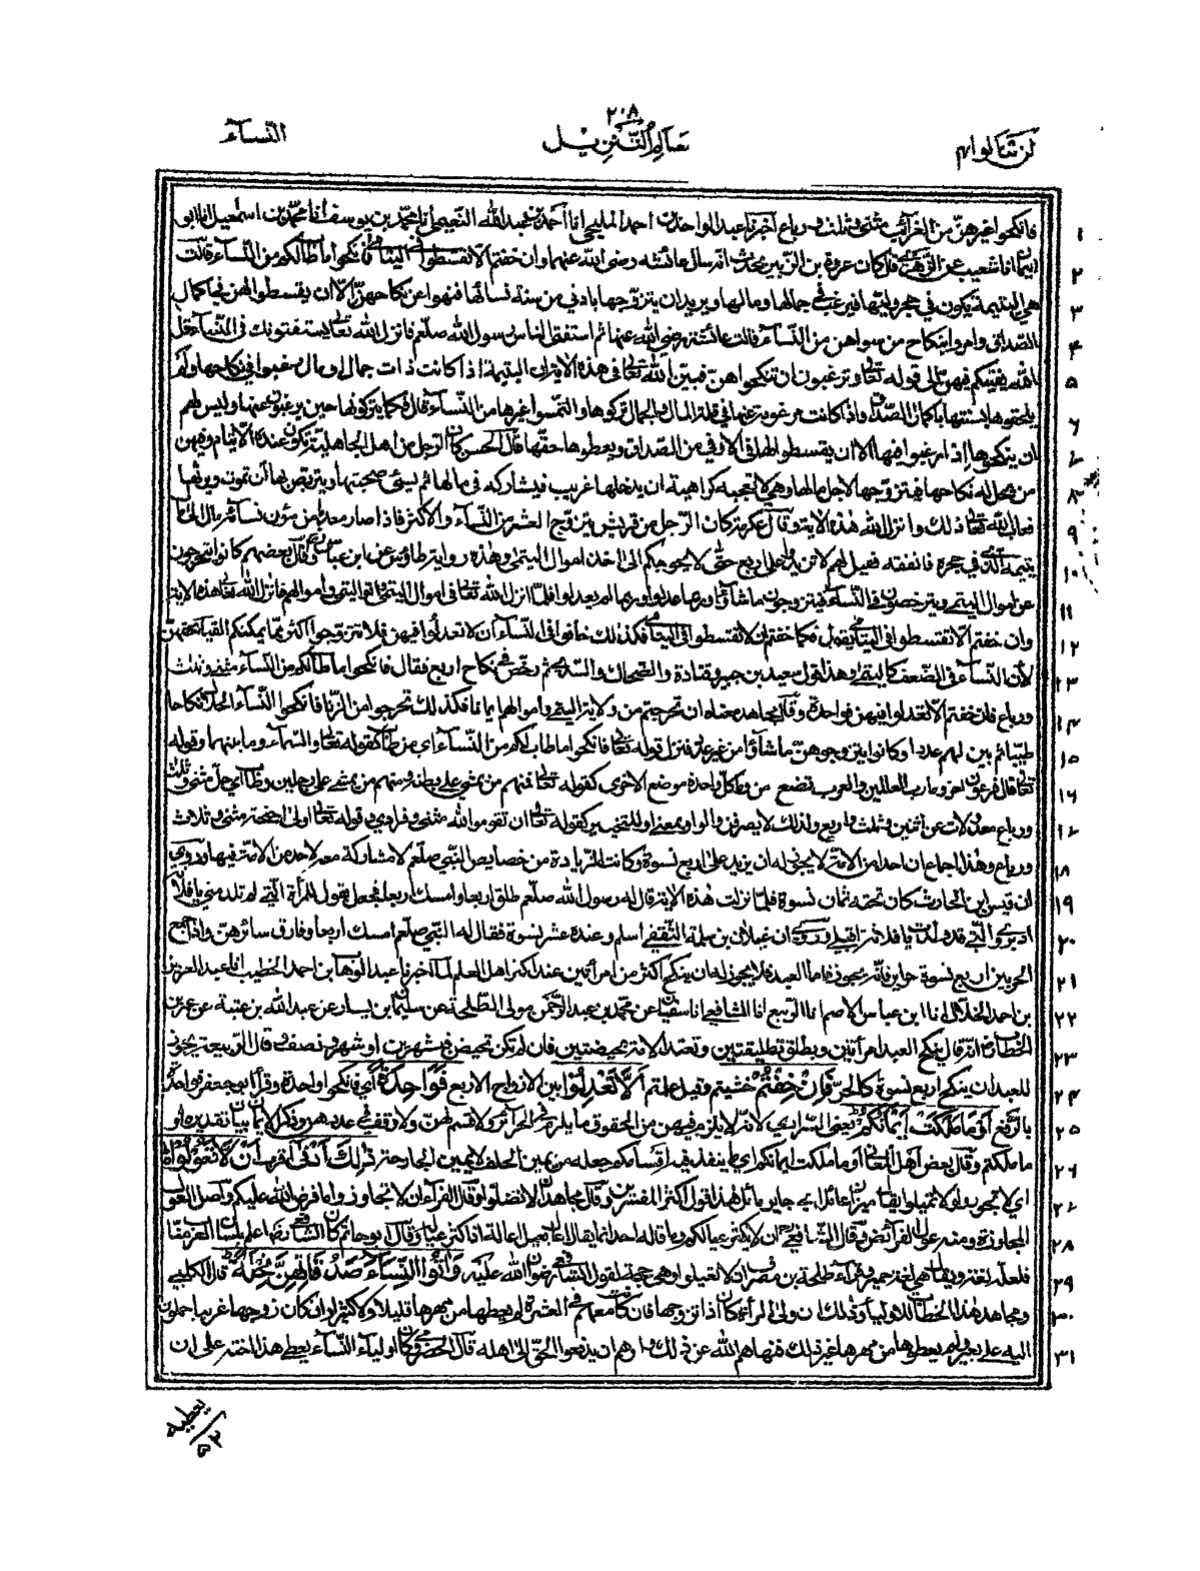 ٢٠٨
لن تنالوا ٤ معالم التنزيل النسآء
فانكحوا غيرهن من الغرائب مثنى وثلث ورباع اخبرنا عبد الواحد بن احمد المليحي انا احمد بن عبد الله النعيمي انا محمد بن يوسف انا محمد بن اسمعيل انا ابو ١
اليمان انا شعيب عن الزهري قال كان عروة بن الزبير يحدث انه سال عائشه رضي الله عنها وان خفتم الا تقسطوا في اليتامى فانكحوا ما طاب لكم من النسآء قالت ٢
هي اليتيمة تكون في حجر وليها فيرغب في جمالها ومالها ويريد ان يتزوجها بادنى من سنة نسائها فنهوا عن نكاحهن الا ان يقسطوا لهن في اكمال ٣
الصداق وامروا بنكاح من سواهن من النسآء قالت عائشة رضي الله عنها ثم استفتى الناس رسول الله صلعم فانزل الله تعالى يستفتونك في النسآء قل ٤
الله يفتيكم فيهن الى قوله تعالى وترغبون ان تنكحوهن فبين الله تعالى في هذه الاية ان اليتيمة اذا كانت ذات جمال او مال رغبوا في نكاحها ولم ٥
يلحقوها بسنتها باكمال الصداق واذا كانت مرغوبة عنها في قلة المال والجمال تركوها والتمسوا غيرها من النسآء قال فكما يتركونها حين يرغبون عنها وليس لهم ٦
ان ينكحوها اذا رغبوا فيها الا ان يقسطوا لها الاوفى من الصداق ويعطوها حقها قال الحسن كان الرجل من اهل الجاهلية تكون عنده الايتام وفيهن ٧
من يحل له نكاحها فيتزوجها لاجل مالها وهي لا تعجبه كراهية ان يدخلها غريب فيشاركه في مالها ثم يسيء صحبتها ويتربص بها ان تموت ويرثها ٨
فعاب الله تعالى ذلك وانزل الله هذه الاية وقال عكرمة كان الرجل من قريش يتزوج العشر من النسآء والاكثر فاذا صار معدما من مؤن نسائه مال الى مال ٩
يتيمه الذي في حجره فانفقه فقيل لهم لا تزيدوا على اربع حتى لا يحوجكم الى اخذ اموال اليتمى وهذه رواية طاؤس عن ابن عباس وقال بعضهم كانوا يتحرجون ١٠
عن اموال اليتمى ويترخصون في النسآء فيتزوجون ما شاؤا وربما عدلوا وربما لم يعدلوا فلما انزل الله تعالى في اموال اليتمى اتوا اليتمى اموالهم فانزل الله تعالى هذه الاية ١١
وان خفتم الا تقسطوا في اليتامى يقول فكما خفتم ان لا تقسطوا في اليتامى فكذلك خافوا في النسآء ان لا تعدلوا فيهن فلا تتزوجوا اكثر مما يمكنكم القيام بحقهن ١٢
لان النسآء في الضعف كاليتمى وهذا قول سعيد بن جبير وقتادة والضحاك والسدي ثم رخص في نكاح اربع فقال فانكحوا ما طاب لكم من النسآء مثنى وثلث ١٣
ورباع فان خفتم الا تعدلوا فيهن فواحدة وقال مجاهد معناه ان تحرجتم من ولاية اليتمى واموالهم ايمانا فكذلك تحرجوا من الزنا فانكحوا النسآء الحلال نكاحا ١٤
طيبا ثم بين لهم عددا وكانوا يتزوجوهن ما شاؤا من غير عدد فنزل قوله تعالى فانكحوا ما طاب لكم من النسآء اي من طاب كقوله تعالى والسمآء وما بنىها وقوله ١٥
تعالى قال فرعون وما رب العلمين والعرب تضع من وما كل واحدة موضع الاخرى كقوله تعالى فمنهم من يمشي على بطنه ومنهم من يمشي على رجلين وطاب اي حل مثنى وثلث ١٦
ورباع معدولات عن اثنين وثلث واربع ولذلك لا يصرفن والواو بمعنى او للتخيير كقوله تعالى ان تقوموا لله مثنى وفرادى وقوله تعالى اولي اجنحة مثنى وثلاث ١٧
ورباع وهذا اجماع ان احدا من الامة لا يجوز له ان يزيد على اربع نسوة وكانت الزيادة من خصايص النبي صلعم لا مشاركة معه لاحد من الامة فيها وروي ١٨
ان قيس بن الحارث كان تحته ثمان نسوة فلما نزلت هذه الاية قال له رسول الله صلعم طلق اربعا وامسك اربعا فجعل يقول للمرأة التي لم تلد مني يا فلانة ١٩
ادبري والتي قد ولدت يا فلانة اقبلي وروي ان غيلان بن سلمة الثقفي اسلم وعنده عشر نسوة فقال له النبي صلعم امسك اربعا وفارق سائرهن واذا جمع ٢٠
الحر بين اربع نسوة حراير فانه يجوز فاما العبد فلا يجوز له ان ينكح اكثر من امرأتين عند اكثر اهل العلم لما اخبرنا عبد الوهاب بن احمد الخطيب انا عبد العزيز ٢١
بن احمد الخلال انا ابن عباس الاصم انا الربيع انا الشافعي انا سفيان عن محمد بن عبد الرحمن مولى ال طلحة عن سليمان بن يسار عن عبد الله بن عتبة عن عمر بن ٢٢
الخطاب انه قال ينكح العبد امرأتين ويطلق تطليقتين وتعتد الامة بحيضتين فان لم تكن تحيض فبشهرين او شهر ونصف وقال الربيعة يجوز ٢٣
للعبد ان ينكح اربع نسوة كالحر فَاِنْ خِفْتُمْ خشيتم وقيل علمتم اَلَّا تَعْدِلُوْا بين الازواج الاربع فَوَاحِدَةً اي فانكحوا واحدة وقرأ ابو جعفر فواحدة ٢٤
بالرفع اَوْ مَا مَلَكَتْ اَيْمَانُكُمْ يعني السراري لانه لا يلزم فيهن من الحقوق ما يلزم في الحرائر ولا قسم لهن ولا وقف في عددهن وذكر الايمان بيان تقديره او ٢٥
ما ملكتم وقال بعض اهل المعاني او ما ملكت ايمانكم اي ما ينفذ فيه اقسامكم جعله من يمين الحلف لا يمين الجارحة ذٰلِكَ اَدْنٰى اقرب اَنْ لَّا تَعُوْلُوْا ٢٦
اي لا تجوروا ولا تميلوا يقال ميزان عائل اي جاير مائل هذا قول اكثر المفسرين وقال مجاهد ان لا تضلوا وقال الفرآء ان لا تجاوزوا ما فرض الله عليكم واصل العول ٢٧
المجاوزة ومنه عول الفرائض وقال الشافعي ان لا يكثر عيالكم وما قاله احد انما يقال اعال يعيل اعالة اذا كثر عياله وقال ابو حاتم كان الشافعي اعلم بلسان العرب منا ٢٨
فلعله لغة ويقال هي لغة حمير وقرأ طلحة بن مصرف ان لا تعيلوا وهي حجة لقول الشافعي رضوان الله عليه وَاٰتُوا النِّسَآءَ صَدُقَاتِهِنَّ نِحْلَةً قال الكلبي ٢٩
ومجاهد هذا الخطاب للاوليآء وذلك ان ولي المرأة كان اذا زوجها فان كانت معهم في العشيرة لم يعطها من مهرها قليلا ولا كثيرا وان كان زوجها غريبا حملوها ٣٠
اليه على بعير ولم يعطوها من مهرها غير ذلك فنهاهم الله عن ذلك وامرهم ان يدفعوا الحق الى اهله قال الحضرمي وكان اوليآء النسآء يعطي هذا اخته على ان ٣١
يعطيه